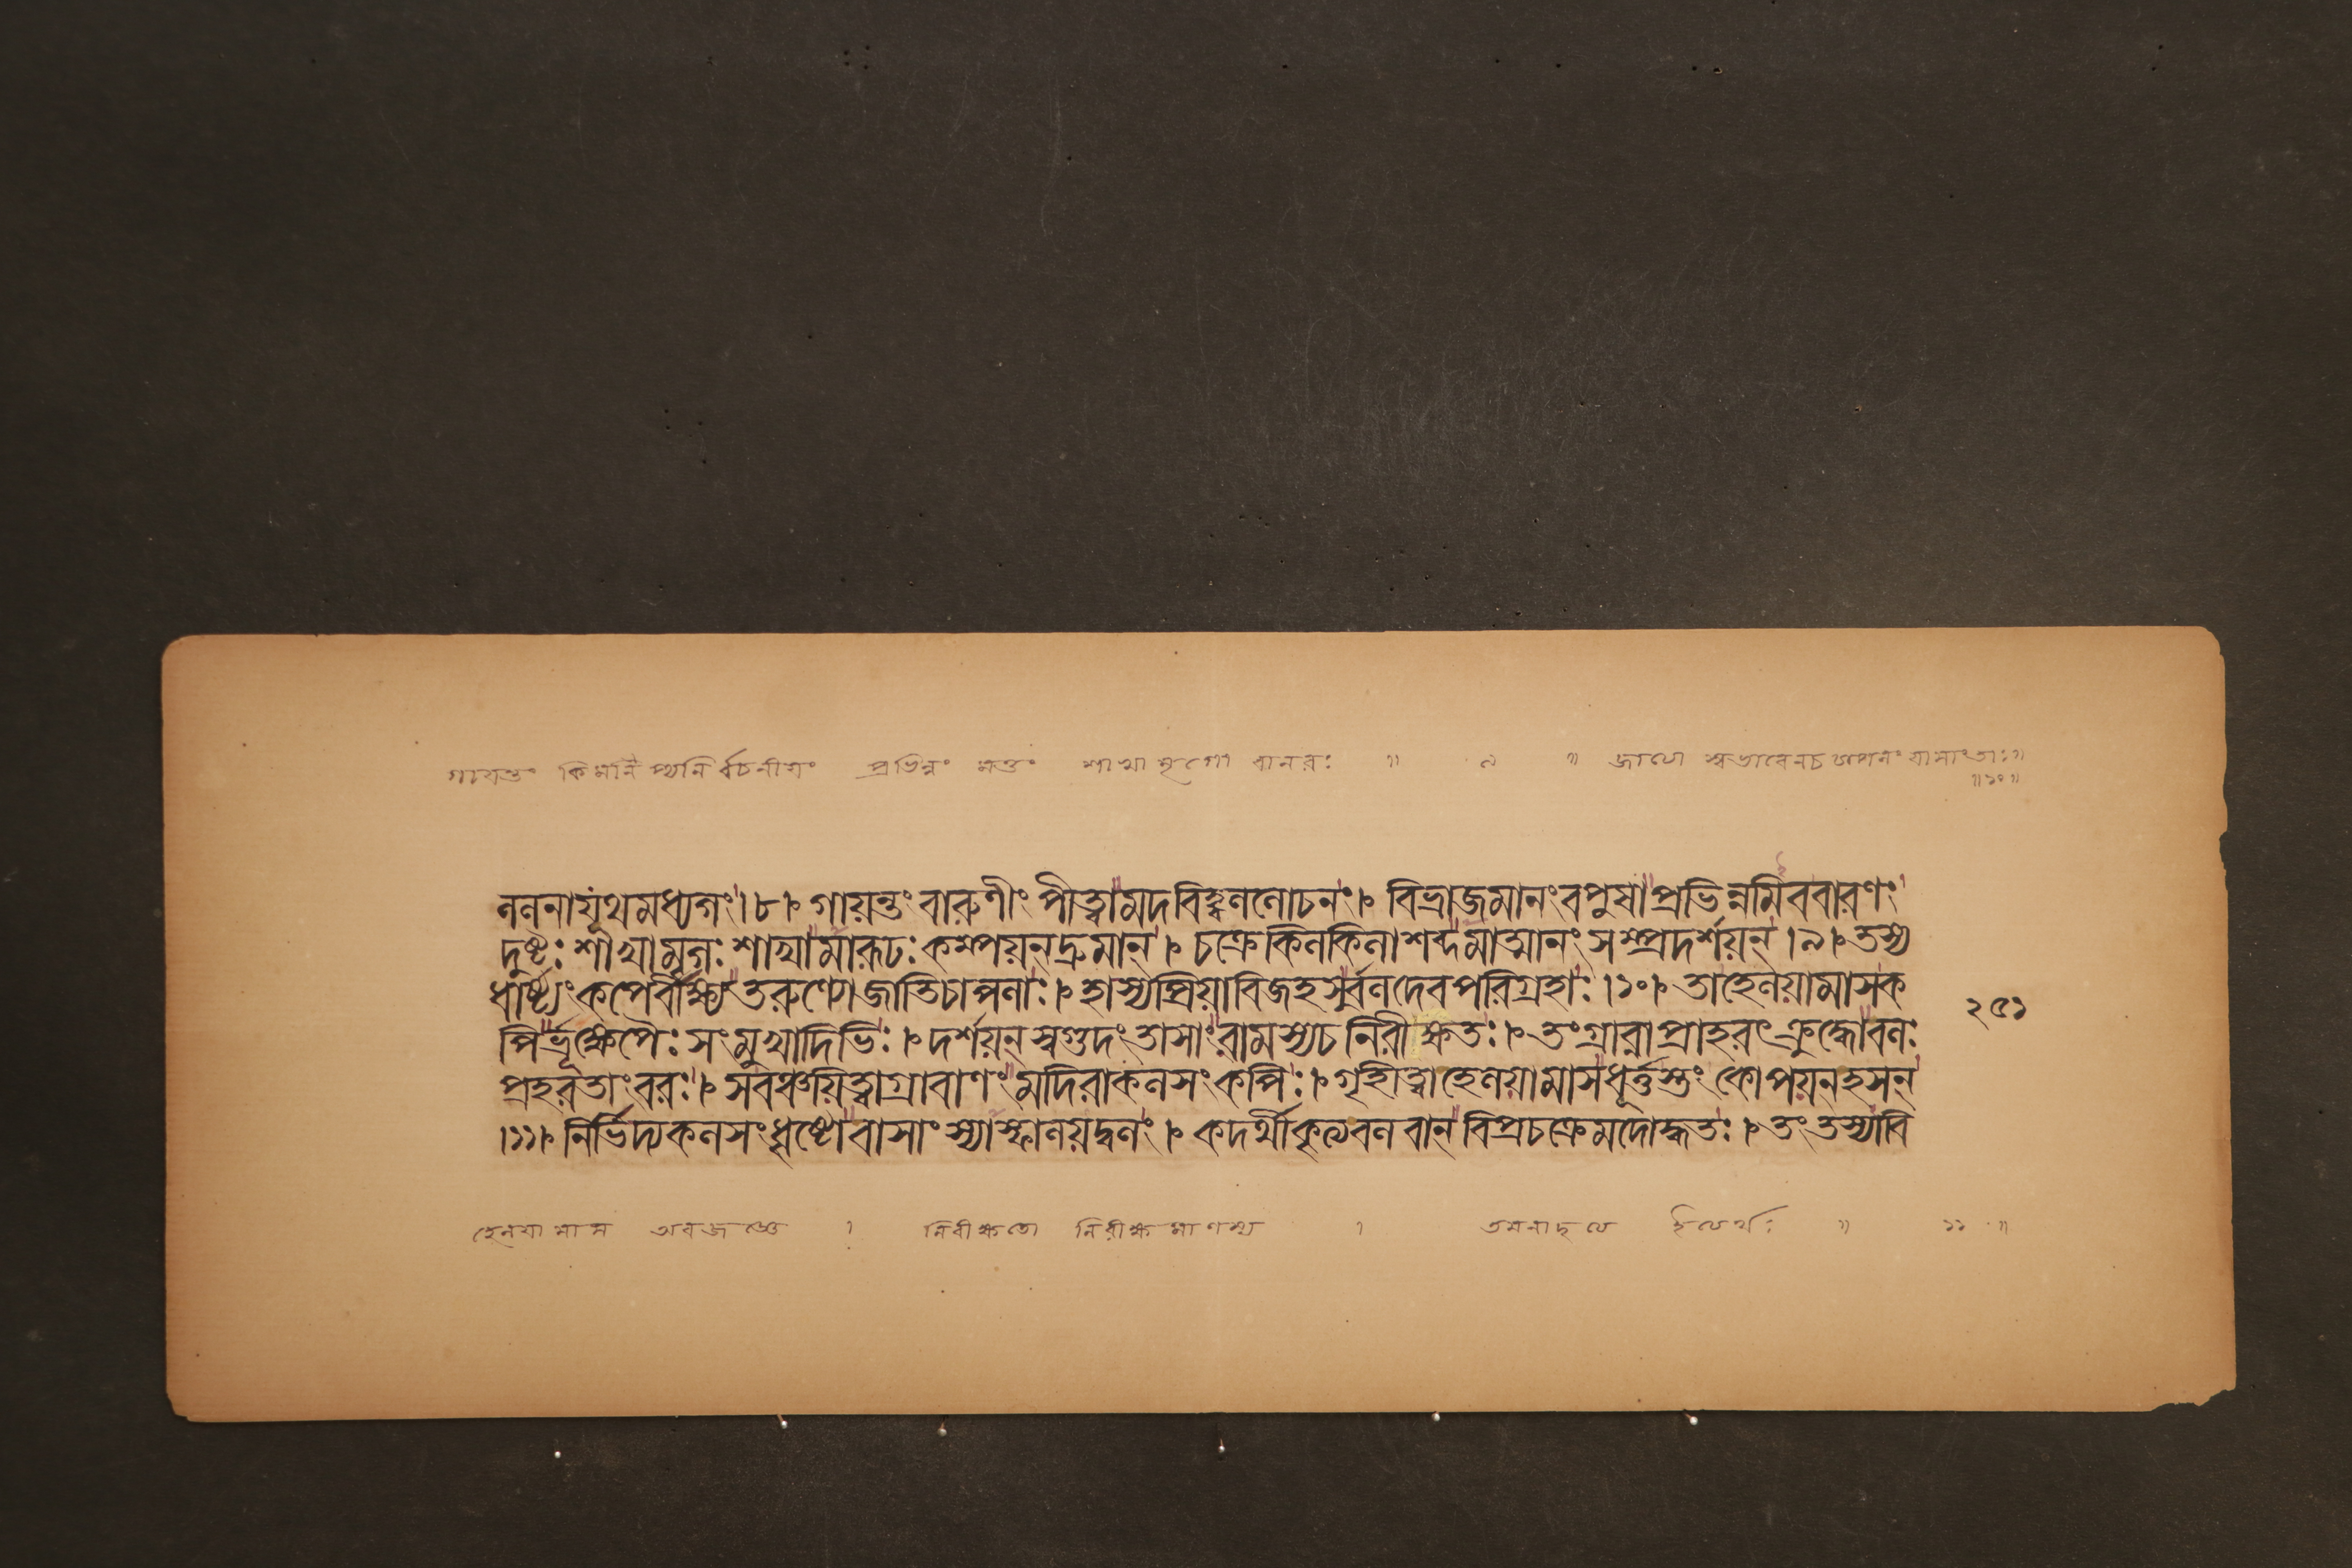 প্রভিন্নং মত্তং শাখামৃগো বানরঃ ॥ ৯ ॥ জাত্যা স্বভাবেনচ চাপলং যাসাংতাঃ॥
॥১০॥
ললনাযূথমধ্যগং।৮। গায়ন্তং বারুণীং পীত্বামদবিহ্বললোচনং। বিভ্রাজমানংবপুষাপ্রভিন্নমিববারণং
দুষ্টঃ শাখামৃগঃ শাখামারূঢঃ কম্পয়ন্দ্রুমান্। চক্রেকিলকিলাশব্দমাত্মানং সম্প্রদর্শয়ন্।৯। তস্য
ধার্ষ্ট্যংকপের্বীক্ষ্যতরুণ্যোজাতিচাপলাঃ। হাস্যপ্রিয়াবিজহসুর্বলদেবপরিগ্রহাঃ।১০। তাহেলয়ামাসক
২৫১
পির্ভ্রূক্ষেপৈঃসংমুখাদিভিঃ। দর্শয়ন্স্বগুদংতাসাংরামস্যচনিরীক্ষতঃ। তংগ্রাব্ণাপ্রাহরৎক্রুদ্ধোবলঃ
প্রহরতাংবরঃ। সবঞ্চয়িত্বাগ্রাবাণং মদিরাকলসংকপিঃ। গৃহিত্বাহেলয়ামাসধূর্ত্তস্তংকোপয়ন্হসন্
।১১। নির্ভিদ্যকলসংধৃষ্টোবাসাংস্যাস্ফালয়দ্বলং। কদর্থীকৃত্যবলবান্বিপ্রচক্রেমদোদ্ধতঃ। তংতস্যাবি
হেলয়ামাস অবজজ্ঞে । নিরীক্ষতো নিরীক্ষমাণস্য । তমনাদৃত্যে ইত্যর্থঃ ॥ ১১ ॥